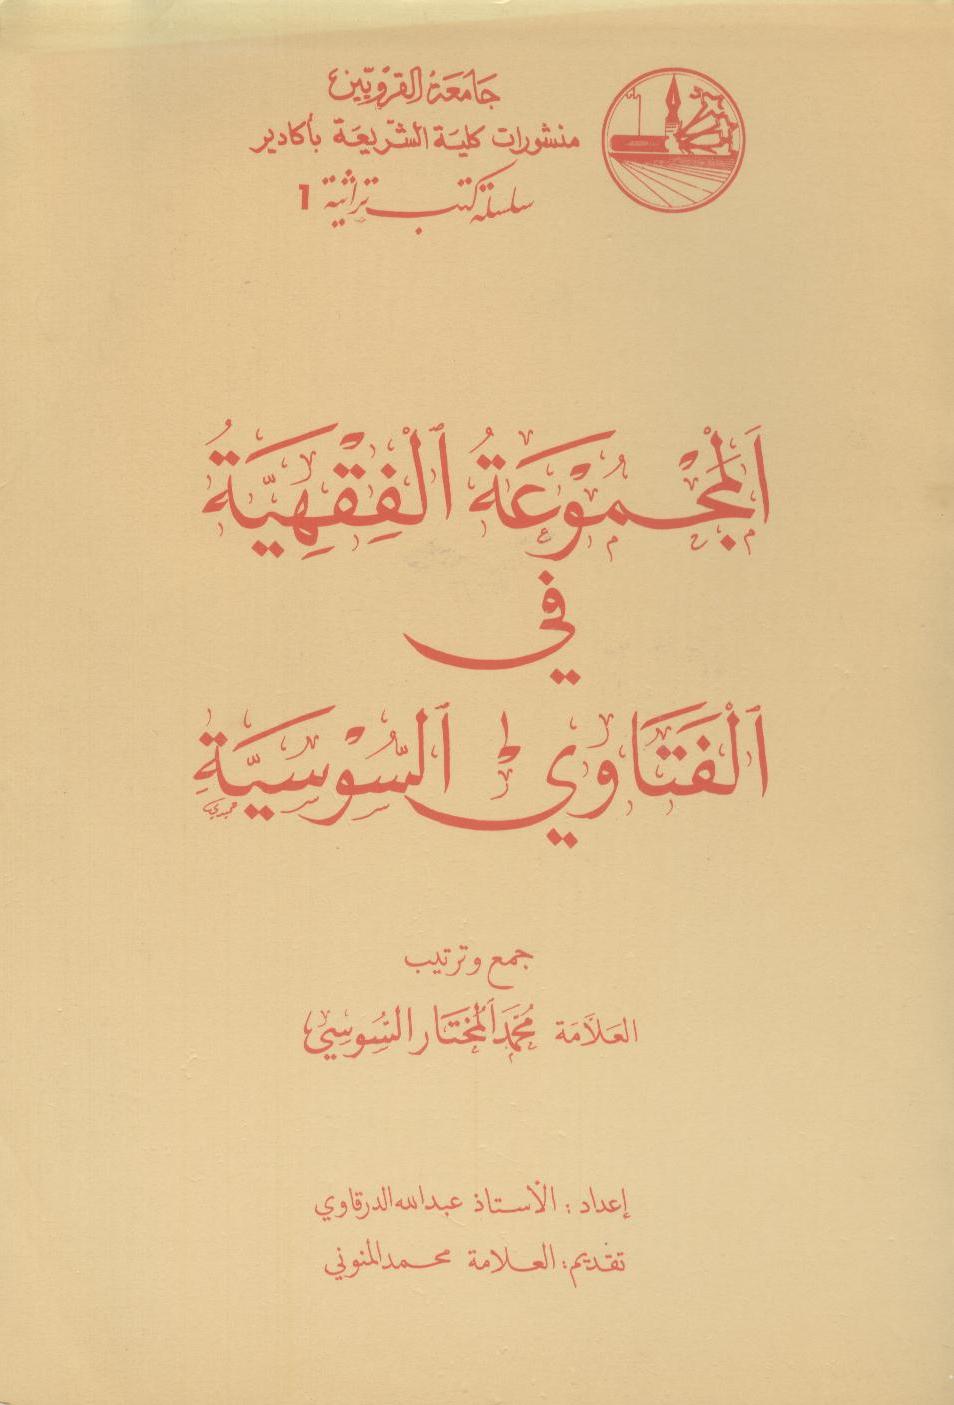 جامعة القرويين
منشورات كلية الشريعة بأكادير
سلسلة كتب تراثية 1
اَلْمَجْمُوْعَةُ اَلْفِقْهِيَّةُ
في
اَلْفَتَاوِي اَلْسُّوْسِيَّةِ
جمع وترتيب
العَلاَّمَة مُحَمَّد اَلمُختَار السُّوسِي
إعداد : الأستاذ عبدالله الدرقاوي
تقديم : العلامة محمد المنوني